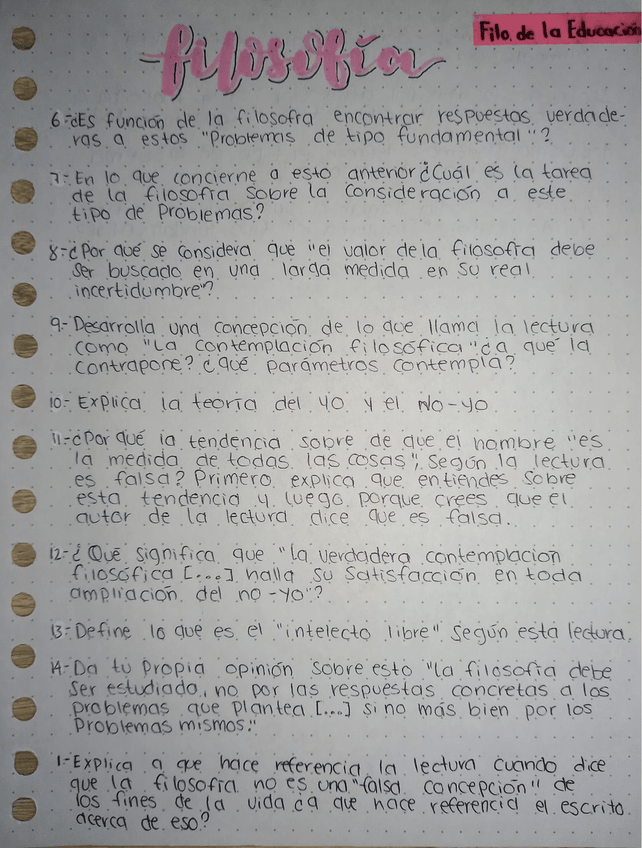 Filo. de la Educación
filosofía
6-¿Es función de la filosofía encontrar respuestas verdade-
ras a estos "Problemas de tipo fundamental"?
7-En lo que concierne a esto anterior ¿Cuál es la tarea
de la filosofía sobre la consideración a este
tipo de Problemas?
8-¿Por qué se considera que "el valor de la filosofía debe
ser buscado en una larga medida en su real
incertidumbre"?
9-Desarrolla una concepción de lo que llama la lectura
como "La contemplación filosófica" ¿a qué la
contrapone? ¿qué parámetros contempla?
10-Explica la teoría del yo y el No-yo
11-¿Por qué la tendencia sobre de que el hombre "es
la medida de todas las cosas", según la lectura
es falsa? Primero explica que entiendes sobre
esta tendencia y luego porque crees que el
autor de la lectura dice que es falsa.
12-¿Qué significa que "la verdadera contemplación
filosófica [...] halla su satisfacción en toda
ampliación del no-yo"?
13-Define lo que es el "intelecto libre" según esta lectura.
14-Da tu propia opinión sobre esto "la filosofía debe
ser estudiada, no por las respuestas concretas a los
problemas que plantea [...] si no más bien por los
Problemas mismos."
1-Explica a que hace referencia la lectura cuando dice
que la filosofía no es una "falsa concepción" de
los fines de la vida ¿a que hace referencia el escrito
acerca de eso?